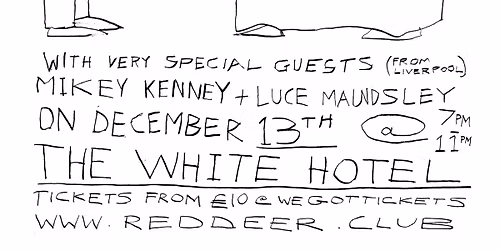 WITH VERY SPECIAL GUESTS (FROM LIVERPOOL)
MIKEY KENNEY + LUCE MAUNDSLEY
ON DECEMBER 13TH @ 7PM - 11PM
THE WHITE HOTEL
TICKETS FROM £10 @ WEGOTTICKETS
WWW.REDDEER.CLUB